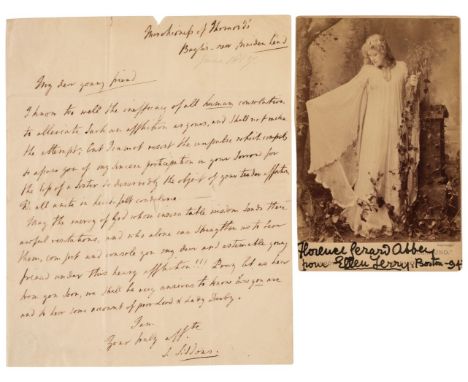 Marchioness of Thomond's
near Maiden head
My dear young friend
I know too well the inefficacy of all human consolation
to alleviate such an affliction as yours, and shall not make
the attempt; but I cannot resist the impulse which compels
to assure you of my sincere participation in your sorrow for
the loss of a Sister so deservedly the object of your tender affection
all unite in heart felt condolence
May the mercy of God whose inscrutable wisdom sends these
awful visitations, and who alone can strengthen us to bear
them, comfort and console you my dear and estimable young
friend under this heavy affliction!!! Pray let us hear
from you soon, we shall be very anxious to know how you are
and to hear some account of poor Lord & Lady Derby.
I am
Your truly affte
S. Siddons
Florence Gerard Abbey
from Ellen Terry. Boston - 94